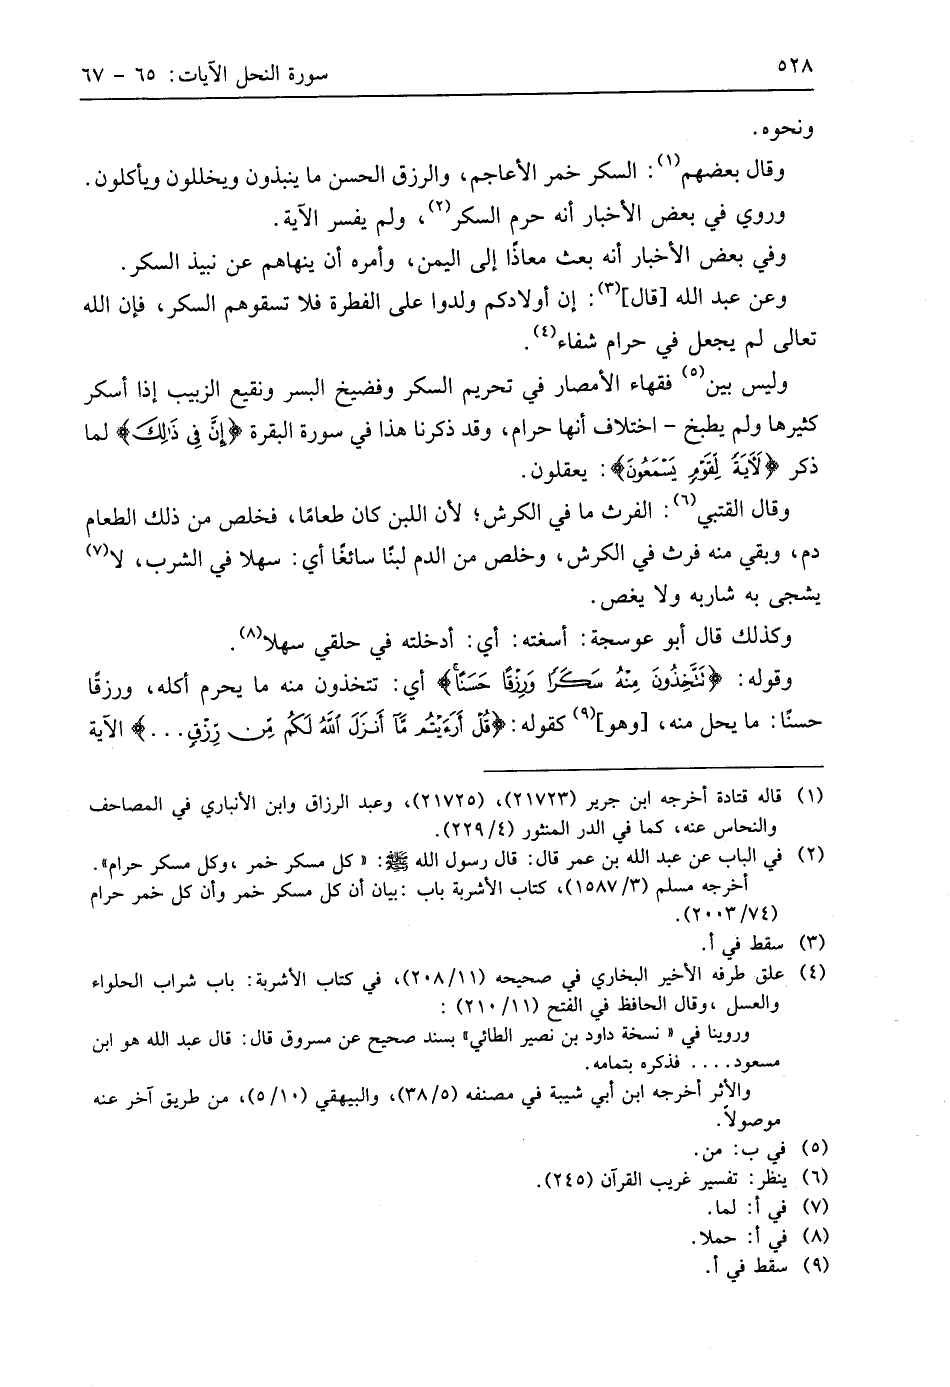 ٥٢٨
سورة النحل الآيات: ٦٥ - ٦٧
ونحوه.
وقال بعضهم(١): السكر خمر الأعاجم، والرزق الحسن ما ينبذون ويخللون ويأكلون.
وروي في بعض الأخبار أنه حرم السكر(٢)، ولم يفسر الآية.
وفي بعض الأخبار أنه بعث معاذًا إلى اليمن، وأمره أن ينهاهم عن نبيذ السكر.
وعن عبد الله [قال](٣): إن أولادكم ولدوا على الفطرة فلا تسقوهم السكر، فإن الله
تعالى لم يجعل في حرام شفاء(٤).
وليس بين(٥) فقهاء الأمصار في تحريم السكر وفضيخ البسر ونقيع الزبيب إذا أسكر
كثيرها ولم يطبخ - اختلاف أنها حرام، وقد ذكرنا هذا في سورة البقرة ﴿إِنَّ فِي ذَٰلِكَ﴾ لما
ذكر ﴿لَآيَةً لِّقَوْمٍ يَسْمَعُونَ﴾: يعقلون.
وقال القتبي(٦): الفرث ما في الكرش؛ لأن اللبن كان طعامًا، فخلص من ذلك الطعام
دم، وبقي منه فرث في الكرش، وخلص من الدم لبنًا سائغًا أي: سهلا في الشرب، لا(٧)
يشجى به شاربه ولا يغص.
وكذلك قال أبو عوسجة: أسغته: أي: أدخلته في حلقي سهلا(٨).
وقوله: ﴿تَتَّخِذُونَ مِنْهُ سَكَرًا وَرِزْقًا حَسَنًا﴾ أي: تتخذون منه ما يحرم أكله، ورزقًا
حسنًا: ما يحل منه، [وهو](٩) كقوله: ﴿قُلْ أَرَءَيْتُم مَّآ أَنزَلَ ٱللَّهُ لَكُم مِّن رِّزْقٍ...﴾ الآية
(١) قاله قتادة أخرجه ابن جرير (٢١٧٢٣)، (٢١٧٢٥)، وعبد الرزاق وابن الأنباري في المصاحف
والنحاس عنه، كما في الدر المنثور (٢٢٩/٤).
(٢) في الباب عن عبد الله بن عمر قال: قال رسول الله ﷺ: «كل مسكر خمر ،وكل مسكر حرام».
أخرجه مسلم (١٥٨٧/٣)، كتاب الأشربة باب :بيان أن كل مسكر خمر وأن كل خمر حرام
(٢٠٠٣/٧٤).
(٣) سقط في أ.
(٤) علق طرفه الأخير البخاري في صحيحه (٢٠٨/١١)، في كتاب الأشربة: باب شراب الحلواء
والعسل ،وقال الحافظ في الفتح (٢١٠/١١) :
وروينا في « نسخة داود بن نصير الطائي» بسند صحيح عن مسروق قال: قال عبد الله هو ابن
مسعود.... فذكره بتمامه.
والأثر أخرجه ابن أبي شيبة في مصنفه (٣٨/٥)، والبيهقي (٥/١٠)، من طريق آخر عنه
موصولاً.
(٥) في ب: من.
(٦) ينظر: تفسير غريب القرآن (٢٤٥).
(٧) في أ: لما.
(٨) في أ: حملا.
(٩) سقط في أ.